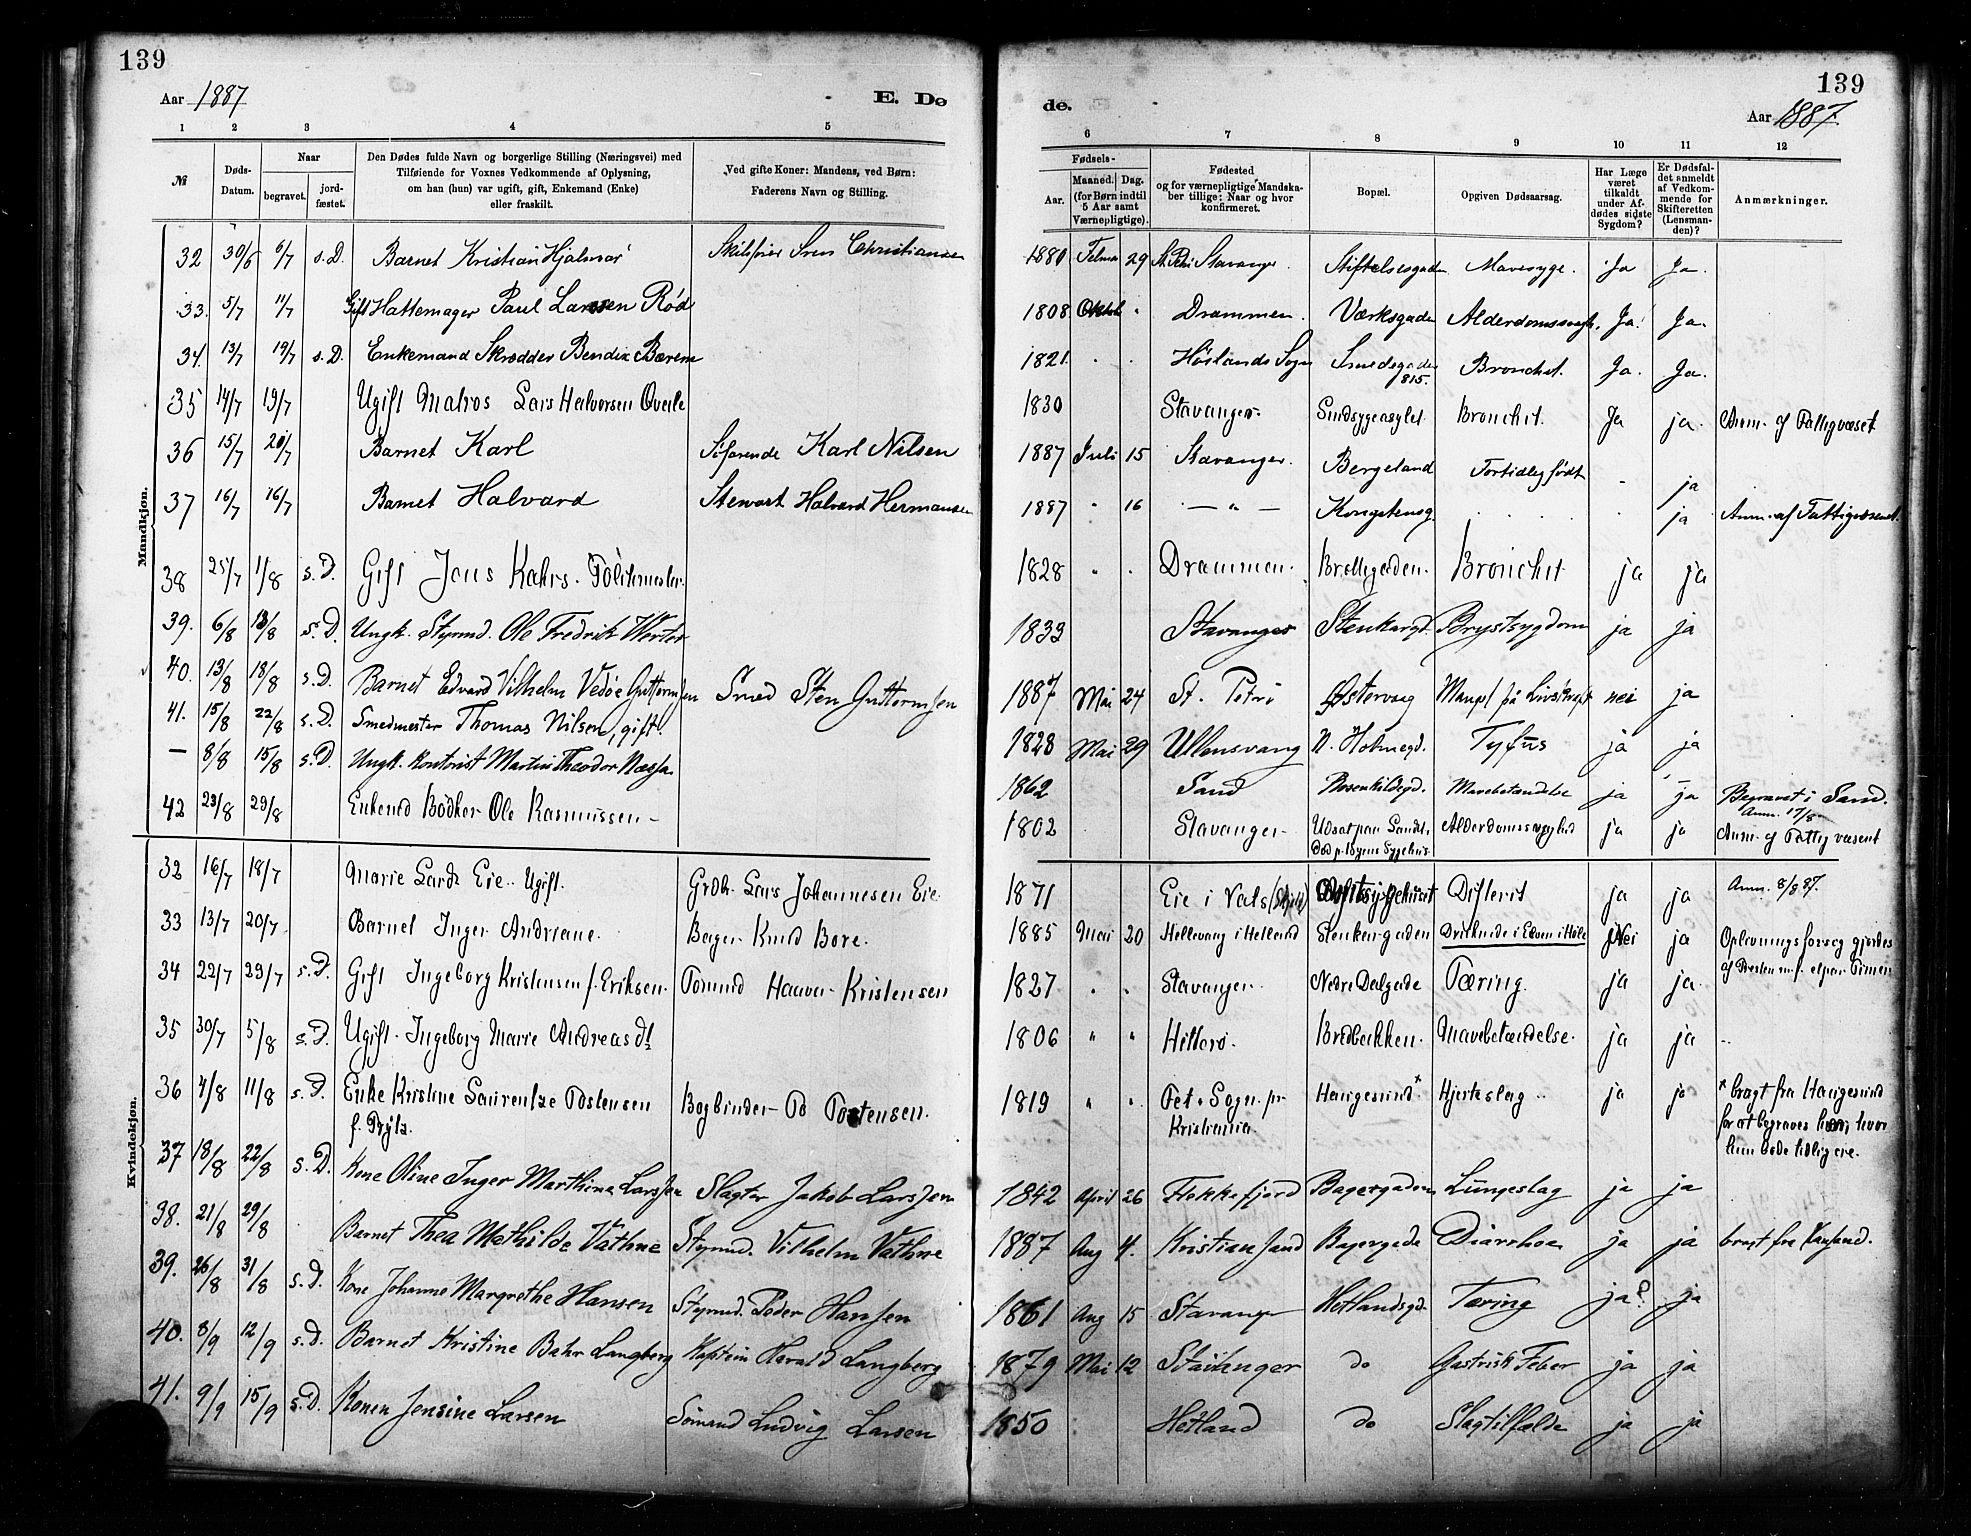 139
Aar 1887
E. Dø
1 2 3 4 5
№ Døds-Datum. Naar begravet. jord-fæstet. Den Dødes fulde Navn og borgerlige Stilling (Næringsvei) med Tilføiende for Voxnes Vedkommende af Oplysning, om han (hun) var ugift, gift, Enkemand (Enke) eller fraskilt. Ved gifte Koner: Mandens, ved Børn: Faderens Navn og Stilling.
Mandkjøn.
32 30/6 6/7 s.D. Barnet Kristian Hjalmar Christiansen
33. 5/7 11/7 Gift Hattemager Paul Larsen Rød
34. 13/7 19/7 s.D. Enkemand Skrædder Bendix Bærem
35 14/7 19/7 Ugift Matros Lars Halvorsen Qverle
36 15/7 20/7 Barnet Karl Søfarende Karl Nilsen
37 16/7 16/7 Barnet Halvard Stewart Halvard Hermansen
38 25/7 1/8 s.D. Gift Jens Kahrs. Politimester.
39. 6/8 13/8 s.D. Ungk. Styrmd. Ole Fredrik
40. 13/8 18/8 s.D. Barnet Edvard Vilhelm Vedøe Guttormsen Smed Sten Guttormsen
41. 15/8 22/8 s.D. Smedmester Thomas Nilsen, gift.
— 8/8 15/8 s.D. Ungk. Kontorist Martin Theodor Næssa
42 23/8 29/8 Enkemd Bødker Ole Rasmussen
Kvindekjøn.
32 16/7 18/7 Marie Larsd. Eie. Ugift. Grdbr. Lars Johannesen Eie.
33 13/7 20/7 Barnet Inger Andriane. Bager Knud Bore.
34 22/7 29/7 s.D. Gift Ingeborg Kristensen f. Eriksen. Tømmd Haaver Kristensen
35 30/7 5/8 s.D. Ugift. Ingeborg Marie Andreasdt.
36 4/8 11/8 s.D. Enke Kristine Laurentze Tostensen Bogbinder Tostensen.
37 18/8 22/8 s.D. Kone Oline Inger Marthine Larssen Slagter Jakob Larssen
38. 21/8 29/8 Barnet Thea Mathilde Vathne Styrmd. Vilhelm Vathne
39. 26/8 31/8 s.D. Kone Johanne Margrethe Hansen Styrmd. Peder Hansen
40. 8/9 12/9 s.D. Barnet Kristine Bahr Langberg Kaptein Harald Langberg
41. 9/9 15/9 s.D. Konen Jensine Larsen Sømand Ludvig Larsen
139
de. Aar 1887.
6 7 8 9 10 11 12
Fødsels- Aar. Maaned. Dag. (for Børn indtil 5 Aar samt Værnepligtige). Fødested og for værnepligtige Mandskaber tillige: Naar og hvor konfirmeret. Bopæl. Opgiven Dødsaarsag. Har Læge været tilkaldt under Afdødes sidste Sygdom? Er Dødsfaldet anmeldt af Vedkommende for Skifteretten (Lensmanden)? Anmærkninger.
29 St. Petri Stavanger. Stiftelsesgaden Mavesyge. Ja Ja.
1808 Oktob Drammen. Værksgaden Ja. Ja.
1821. Høilands Sogn Smedsgaden 815. Bronchit. Ja. Ja.
1830 Stavanger Sindsygeasylet Bronchit. Ja ja. Anm. af Fattigvæset
1887 Juli 15 Stavanger. Bergeland Fortidlig født ja
1887 " 16 — " — Kongstensg. ja Anm. af Fattigvæsenet.
1828 Drammen. Bredegaden. Bronchit ja ja
1833 Stavanger Stenkargd. Brystsygdom ja ja
1887 Mai 24 St. Petri Østervaag Mangel på Livskraft nei ja
1828 Mai 29 Ullensvang N. Holmegd. Tyfus ja ja
1862 Sand Rosenkildegd. Mavebetændelse ja ja Begravet i Sand. Anm. 17/8
1802 Stavanger Alderdomssvaghed ja ja Anm. af Fattigvæsent
Død p. Byens Sygehus.
1871 Eie i Vats Difterit ja ja Anm. 8/8 87.
1885 Mai 20 Hellevang i Hetland Stenkargaden Nei ja Oplivningsforsøg gjordes
1827 Stavanger Nedre Dalgade Tæring. ja ja
1806 " " Hitterø. Bredbakken. Mavebetændelse. ja ja
1819 " Fet Sogn pr Kristiania Haugesund× Hjerteslag ja ja × bragt fra Haugesund
for at begraves her, hvor
hun bode tidligere.
1842 April 26 Flekkefjord Bagergaden Lungeslag ja ja
1887 Aug 4. Kristiansand Bagergade Diarrhoe ja ja bragt fra
1861 Aug 15 Stavanger Hetlandsgd. Tæring ja? ja
1879 Mai 12 Stavanger do Gastrisk Feber ja ja
1850 Hetland do Slagtilfælde ja ja